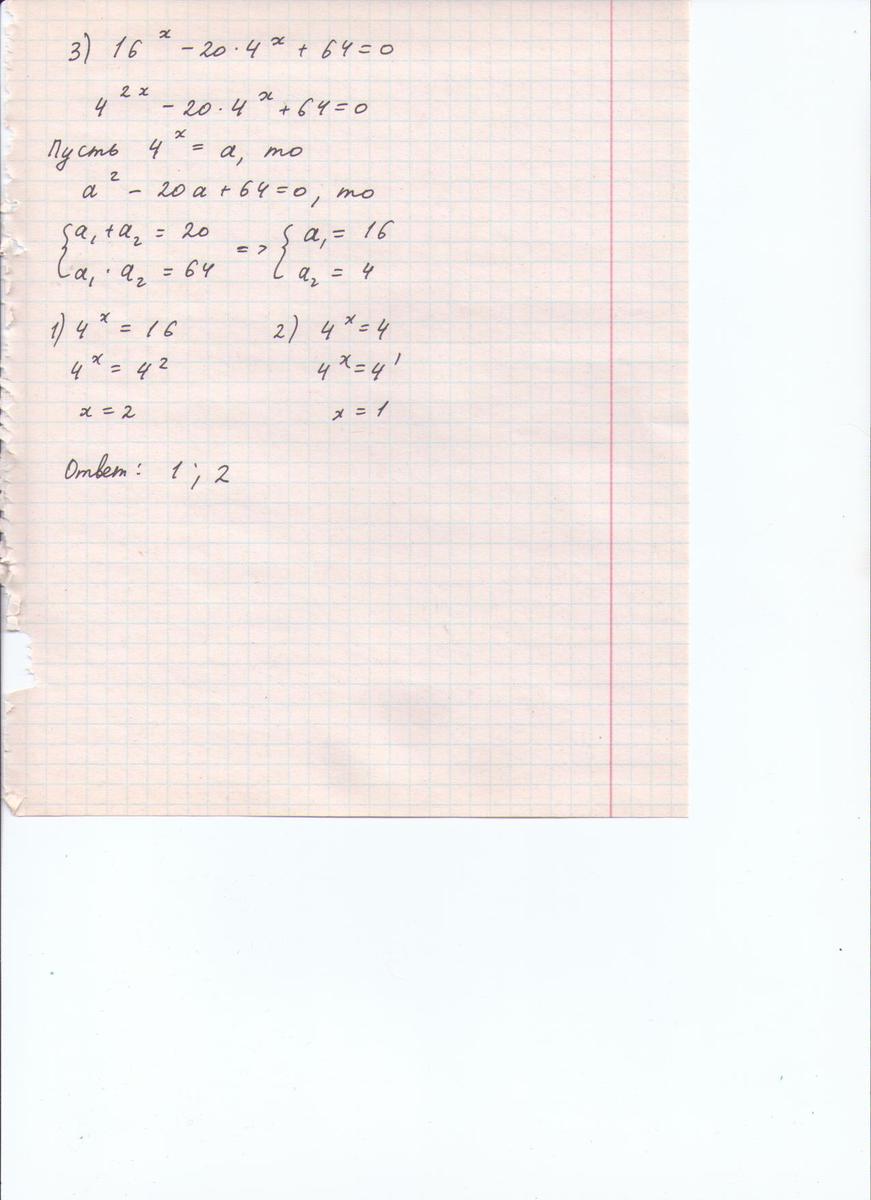 3) 16^x - 20 · 4^x + 64 = 0
4^2x - 20 · 4^x + 64 = 0
Пусть 4^x = a, то
a^2 - 20a + 64 = 0, то
{a₁ + a₂ = 20 => {a₁ = 16
{a₁ · a₂ = 64 {a₂ = 4
1) 4^x = 16 2) 4^x = 4
4^x = 4^2 4^x = 4^1
x = 2 x = 1
Ответ: 1; 2